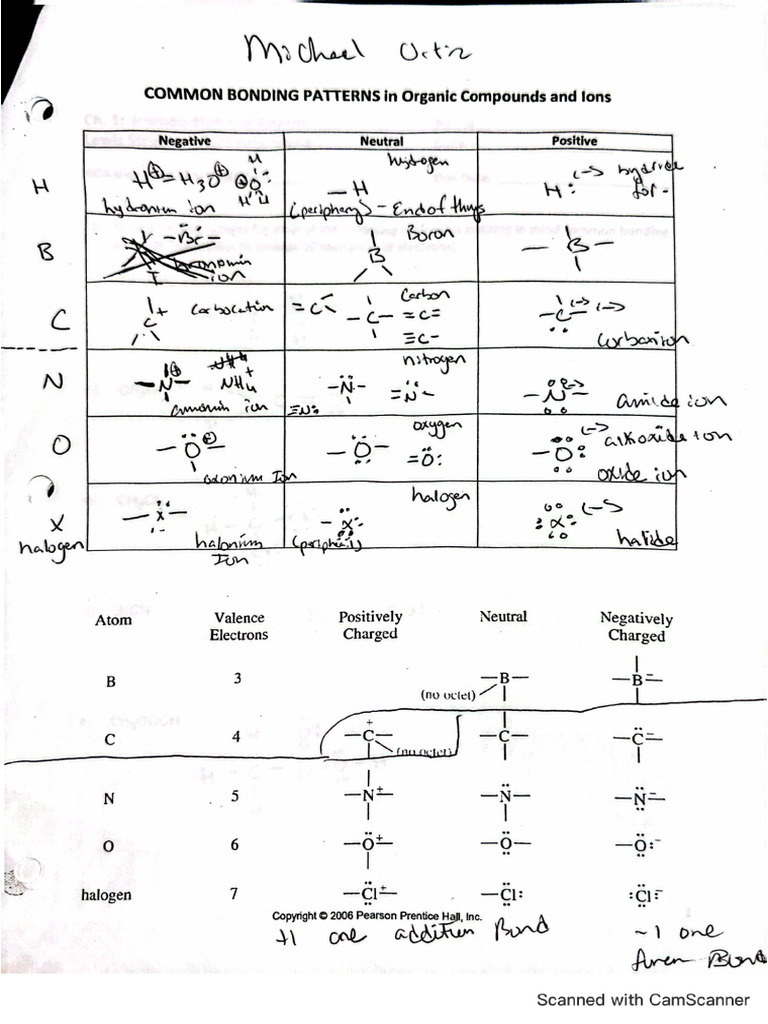 Michael Ortiz
COMMON BONDING PATTERNS in Organic Compounds and Ions
Negative Neutral Positive
H
H⊕ = H₃O⊕
hydronium ion
hydrogen
—H
(periphery) - End of
H: (-)
B
Br
ion
Boron
B
B
C
C+ carbocation
Carbon
=C
—C— =C=
≡C—
C (-)
carbanion
N
—N— NH₄+
ion
nitrogen
—N— =N—
≡N:
—N— (-)
amide ion
O
—O—
Ion
oxygen
—O— =O:
—O: (-) alkoxide ion
oxide ion
X
halogen
—X—
halonium
Ion
halogen
—X:
:X: (-)
halide
Atom Valence Electrons Positively Charged Neutral Negatively Charged
B 3 —B— —B—
(no octet)
C 4 —C— —C— —C—
+
(no octet)
N 5 —N+— —N— —N—
O 6 —O+— —O— —O:
halogen 7 —Cl+— —Cl: :Cl:
Copyright © 2006 Pearson Prentice Hall, Inc.
+1 one addition Bond
-1 one
Bond
Scanned with CamScanner